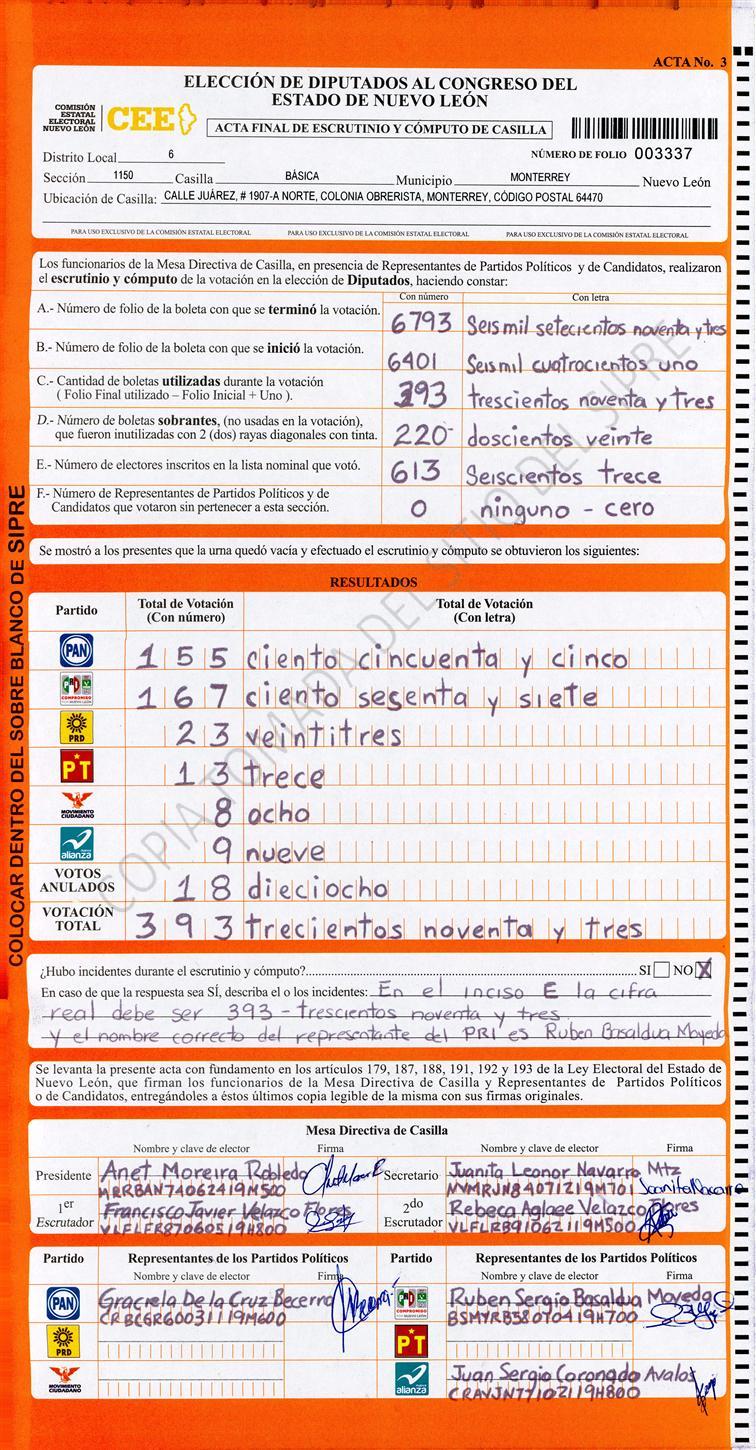 ACTA No. 3
ELECCIÓN DE DIPUTADOS AL CONGRESO DEL
ESTADO DE NUEVO LEÓN
COMISIÓN
ESTATAL
ELECTORAL
NUEVO LEÓN
CEE
ACTA FINAL DE ESCRUTINIO Y CÓMPUTO DE CASILLA
Distrito Local 6
NÚMERO DE FOLIO 003337
Sección 1150 Casilla BÁSICA Municipio MONTERREY Nuevo León
Ubicación de Casilla: CALLE JUÁREZ, # 1907-A NORTE, COLONIA OBRERISTA, MONTERREY, CÓDIGO POSTAL 64470
PARA USO EXCLUSIVO DE LA COMISIÓN ESTATAL ELECTORAL PARA USO EXCLUSIVO DE LA COMISIÓN ESTATAL ELECTORAL PARA USO EXCLUSIVO DE LA COMISIÓN ESTATAL ELECTORAL
Los funcionarios de la Mesa Directiva de Casilla, en presencia de Representantes de Partidos Políticos y de Candidatos, realizaron
el escrutinio y cómputo de la votación en la elección de Diputados, haciendo constar:
Con número Con letra
A.- Número de folio de la boleta con que se terminó la votación. 6793 Seis mil setecientos noventa y tres
B.- Número de folio de la boleta con que se inició la votación. 6401 Seis mil cuatrocientos uno
C.- Cantidad de boletas utilizadas durante la votación
( Folio Final utilizado – Folio Inicial + Uno ). 393 trescientos noventa y tres
D.- Número de boletas sobrantes, (no usadas en la votación),
que fueron inutilizadas con 2 (dos) rayas diagonales con tinta. 220- doscientos veinte
E.- Número de electores inscritos en la lista nominal que votó. 613 Seiscientos trece
F.- Número de Representantes de Partidos Políticos y de
Candidatos que votaron sin pertenecer a esta sección. 0 ninguno - cero
Se mostró a los presentes que la urna quedó vacía y efectuado el escrutinio y cómputo se obtuvieron los siguientes:
RESULTADOS
Partido Total de Votación (Con número) Total de Votación (Con letra)
PAN 155 ciento cincuenta y cinco
PRI COMPROMISO POR NUEVO LEÓN 167 ciento sesenta y siete
PRD 23 veintitres
PT 13 trece
MOVIMIENTO CIUDADANO 8 ocho
alianza 9 nueve
VOTOS ANULADOS 18 dieciocho
VOTACIÓN TOTAL 393 trecientos noventa y tres
COLOCAR DENTRO DEL SOBRE BLANCO DE SIPRE
COPIA TOMADA DEL SITIO DEL SIPRE
¿Hubo incidentes durante el escrutinio y cómputo? SI NO X
En caso de que la respuesta sea SÍ, describa el o los incidentes: En el inciso E la cifra
real debe ser 393 - trescientos noventa y tres
y el nombre correcto del representante del PRI es Ruben Basaldua Moyeda
Se levanta la presente acta con fundamento en los artículos 179, 187, 188, 191, 192 y 193 de la Ley Electoral del Estado de
Nuevo León, que firman los funcionarios de la Mesa Directiva de Casilla y Representantes de Partidos Políticos
o de Candidatos, entregándoles a éstos últimos copia legible de la misma con sus firmas originales.
Mesa Directiva de Casilla
Nombre y clave de elector Firma Nombre y clave de elector Firma
Presidente Anet Moreira Robledo Secretario Juanita Leonor Navarro Mtz
MRRBAN74062419M500 NVMRJN84071219M701 Juanita Navarro
1er Escrutador Francisco Javier Velazco Flores 2do Escrutador Rebeca Aglaee Velazco Flores
VLFLFR87060519H800 VLFLRB91062119M500
Partido Representantes de los Partidos Políticos Partido Representantes de los Partidos Políticos
Nombre y clave de elector Firma Nombre y clave de elector Firma
PAN Graciela De la Cruz Becerra PRI COMPROMISO POR NUEVO LEÓN Ruben Sergio Basaldua Moyeda
CRBCGR60031119M600 BSMYRB58070419H700
PRD PT
MOVIMIENTO CIUDADANO alianza Juan Sergio Coronado Avalos
CRAVJN77102119H800